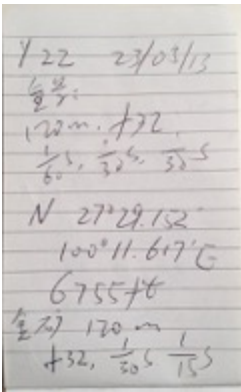 Y22 23/03/13
120m. f32.
1/60s, 1/30s, 1/30s
N 27°29.152'
100°11.617'E
6755ft
120m
f32, 1/30s 1/15s